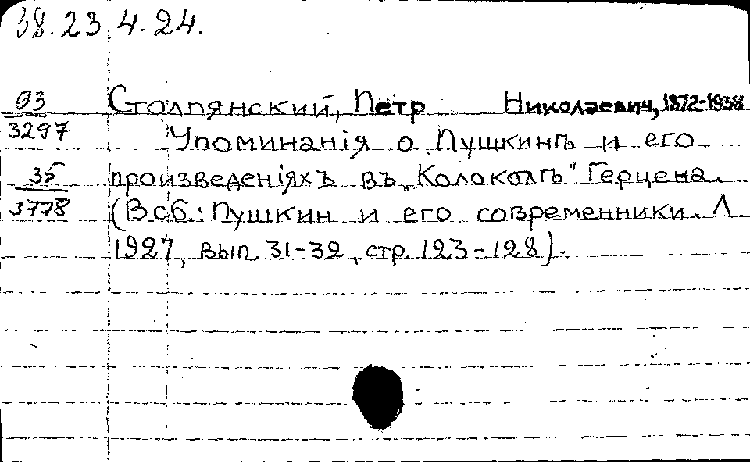 38.23.4.24.
93 Столпянский, Петр Николаевич, 1872-1938
3297 Упоминанія о Пушкинѣ и его
35 произведеніяхъ въ „Колоколѣ" Герцена.
3778 (В сб.: Пушкин и его современники. Л
1927, вып. 31-32, стр. 123-128).